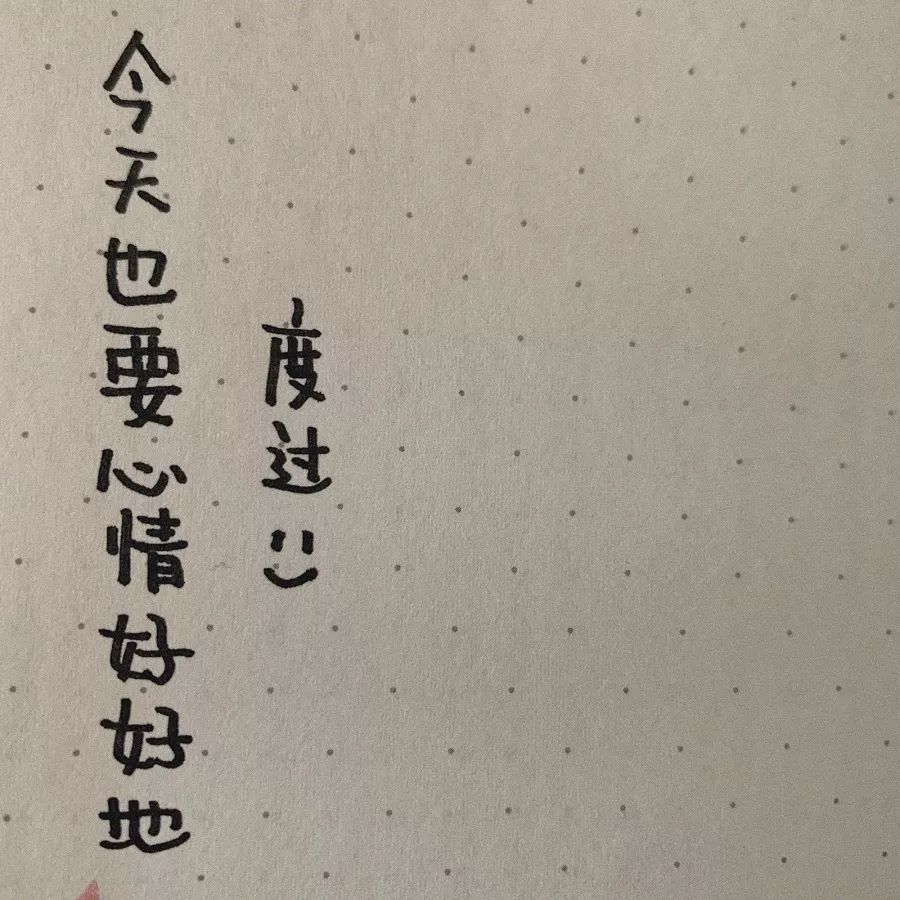 今天也要心情好好地
度过:)